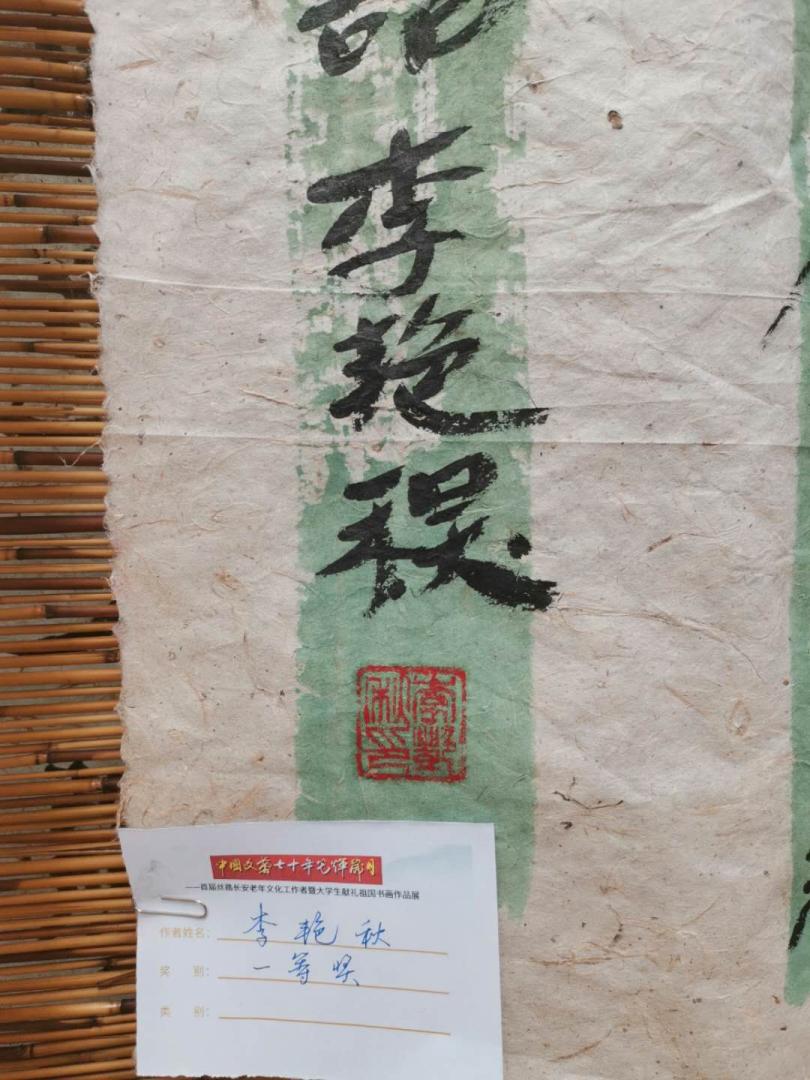 李艳秋
李艳秋印
中国文艺七十年光辉岁月
——首届丝路长安老年文化工作者暨大学生献礼祖国书画作品展
作者姓名：李艳秋
奖 别：一等奖
类 别：